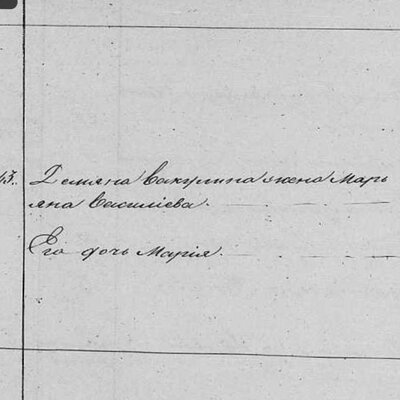 43. Демяна Вакулина жена Марь
яна Василіева.
Его дочь Марія.